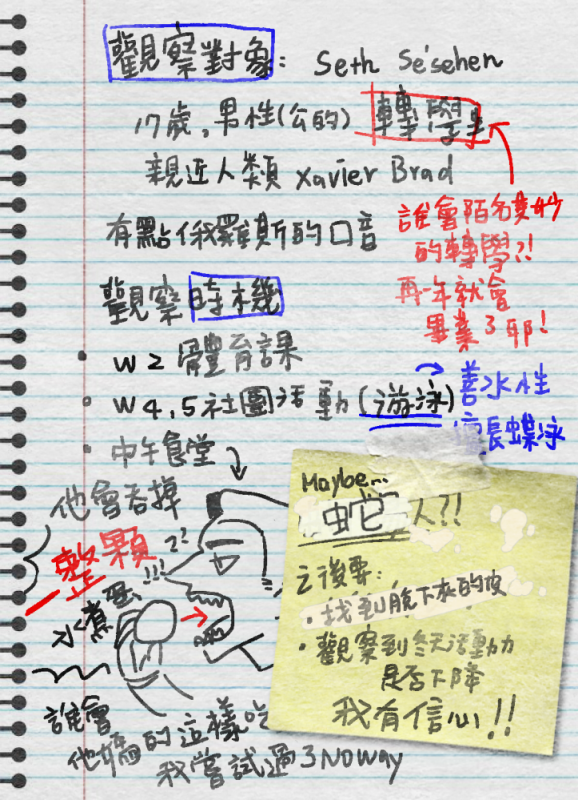 觀察對象: Seth Se'sehen
17歲,男性(公的) 轉學生
親近人類 Xavier Brad
有點俄羅斯的口音
誰會陌名其妙
的轉學?!
再一年就會
畢業了耶!
觀察時機
• W2 體育課
• W4,5社團活動(游泳)
善水性
擅長蝶泳
• 中午食堂
他會吞掉
一整顆
水煮蛋!!!
??
誰會
他媽的這樣吃
我嘗試過了NO WAY
Maybe...
蛇人?!
之後要:
• 找到脫下來的皮
• 觀察到冬天活動力
是否下降
我有信心!!